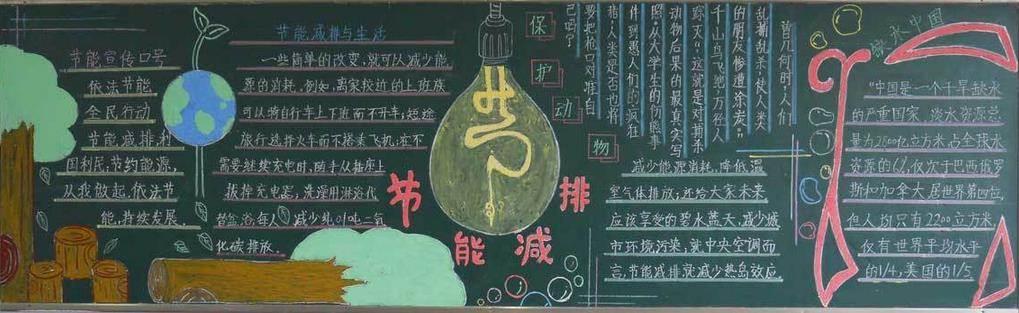 节能宣传口号
依法节能
全民行动
节能减排,利
国利民,节约能源,
从我做起,依法节
能,持续发展.
节能减排与生活
一些简单的改变,就可以减少能
源的消耗,例如,离家较近的上班族
可以骑自行车上下班而不开车;短途
旅行选择火车而不搭乘飞机;在不
需要继续充电时,随手从插座上
拔掉充电器,选
用淋浴代
替盆浴,每人
减少
二氧
化碳排放.
节
节能减排
保护动物
曾几何时,人们
乱捕乱杀,使人类
的朋友惨遭涂炭。
千山鸟飞绝,万径人
踪灭”这就是对捕杀
动物后果的最真实写
照。从大学生的伤熊事
件到愚人们的疯狂
猎,人类是否也将
要把枪口对准自
己吗?
减少能源消耗,降低温
室气体排放,还给大家未来
应该享受的碧水蓝天,减少城
市环境污染,就中央空调而
言,节能减排就减少热岛效应.
缺水中国
“中国是一个干旱缺水
的严重国家,淡水资源总
量为2800亿立方米,占全球水
资源的6%,仅次于巴西俄罗
斯和加拿大,居世界第四位,
但人均只有2200立方米
仅有世界平均水平
的1/4,美国的1/5,